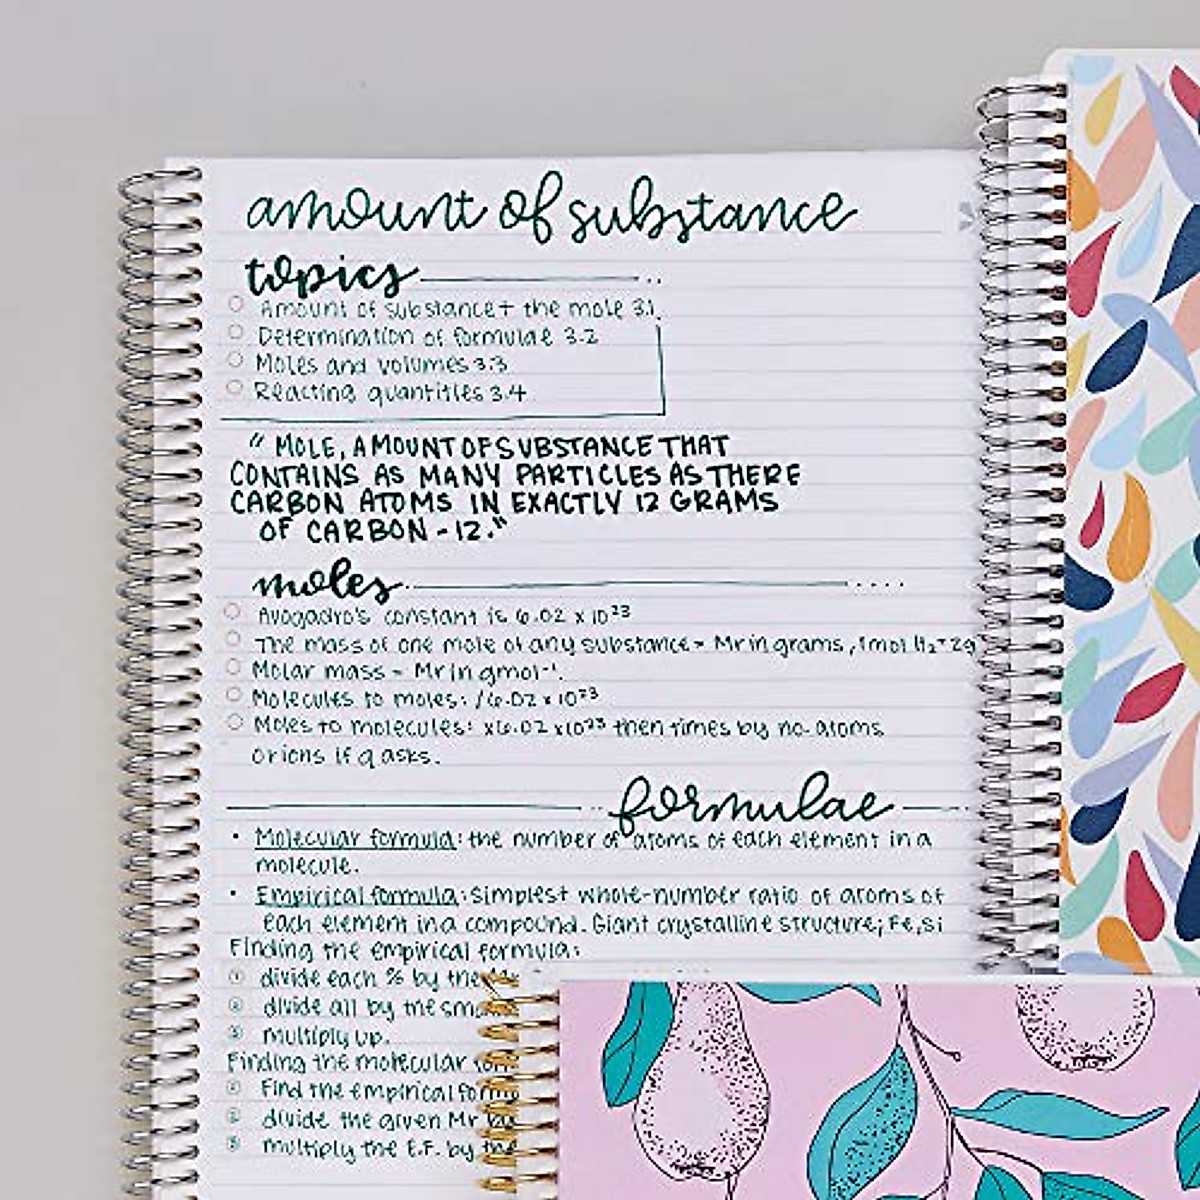 amount of substance
topics
Amount of substance + the mole 3.1
Determination of formulae 3.2
Moles and volumes 3.3
Reacting quantities 3.4
"MOLE, AMOUNT OF SUBSTANCE THAT
CONTAINS AS MANY PARTICLES AS THERE
CARBON ATOMS IN EXACTLY 12 GRAMS
OF CARBON - 12."
moles
Avogadro's constant is 6.02 x 10²³
The mass of one mole of any substance = Mr in grams, 1mol H₂ = 2g
Molar mass = Mr in gmol⁻¹.
Molecules to moles: /6.02 x 10²³
Moles to molecules: x6.02 x10²³ then times by no. atoms
or ions if q asks.
formulae
• Molecular formula: the number of atoms of each element in a
molecule.
• Empirical formula: simplest whole-number ratio of atoms of
each element in a compound. Giant crystalline structure; Fe, Si
Finding the empirical formula:
① divide each % by the
② divide all by the
③ multiply up.
Finding the molecular
① Find the empirical
② divide the given Mr
③ multiply the E.F. by the